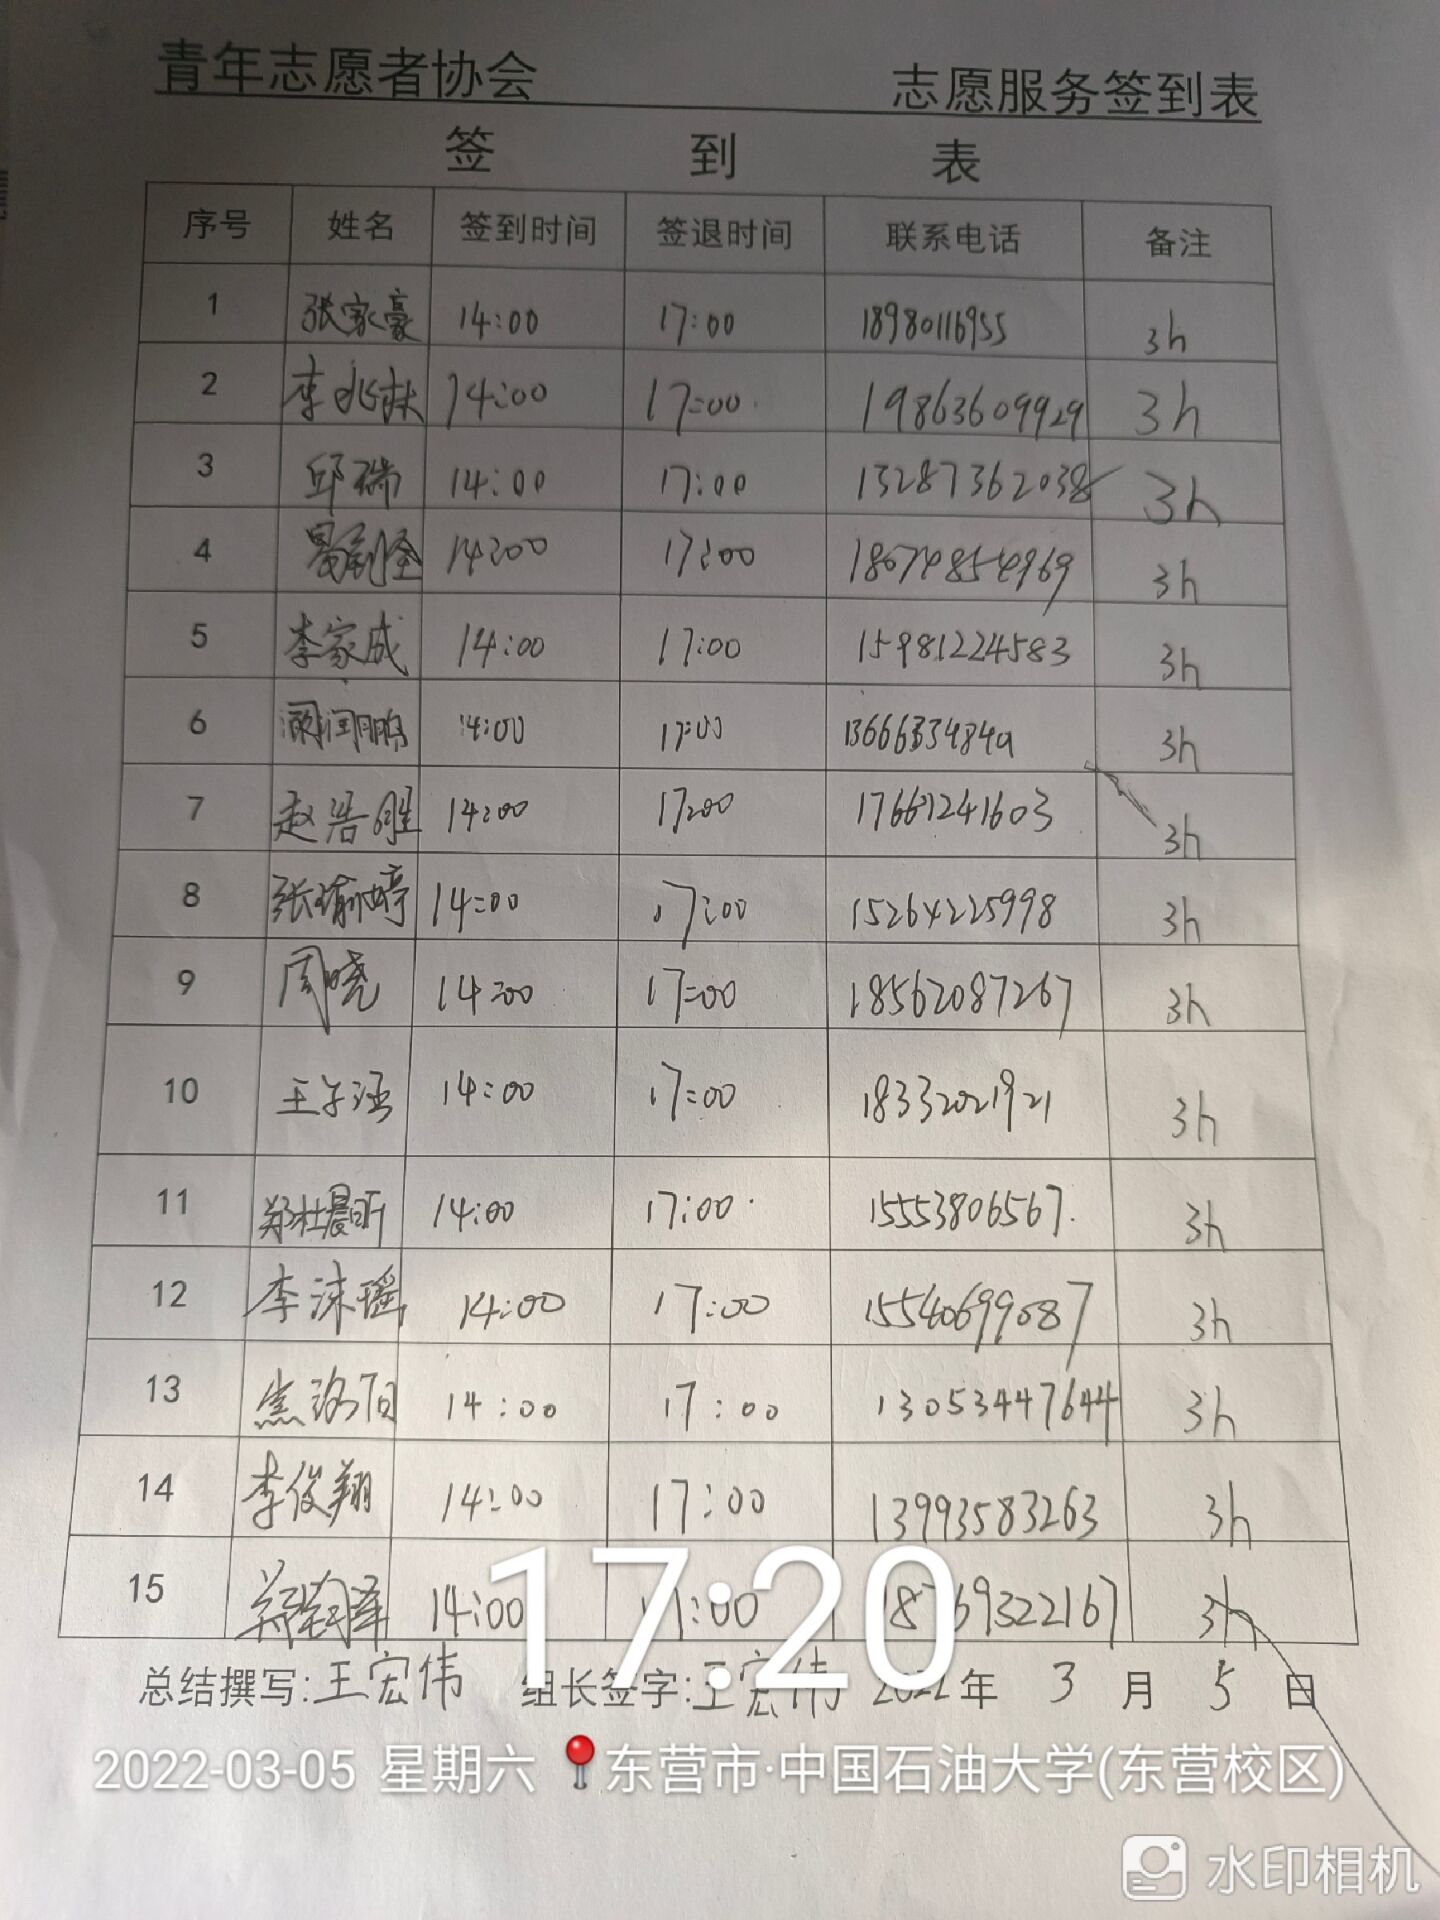 青年志愿者协会 志愿服务签到表
签 到 表
序号 姓名 签到时间 签退时间 联系电话 备注
1 张家豪 14:00 17:00 18980116955 3h
2 李兆林 14:00 17:00 19863609929 3h
3 邱瑞 14:00 17:00 13287362038 3h
4 14:00 17:00 18674854969 3h
5 李家成 14:00 17:00 15981224583 3h
6 14:00 17:00 3h
7 赵浩胜 14:00 17:00 17661241603 3h
8 张瑜婷 14:00 17:00 15264225998 3h
9 周晓 14:00 17:00 18562087267 3h
10 王子涵 14:00 17:00 18332021921 3h
11 郑杜晨昕 14:00 17:00 15553806567 3h
12 李沫瑶 14:00 17:00 15540699087 3h
13 焦洛阳 14:00 17:00 13053447644 3h
14 李俊翔 14:00 17:00 13993583263 3h
15 14:00 17:00 18769322167 3h
17:20
总结撰写:王宏伟 组长签字:王宏伟 2022年 3 月 5 日
2022-03-05 星期六 东营市·中国石油大学(东营校区)
水印相机